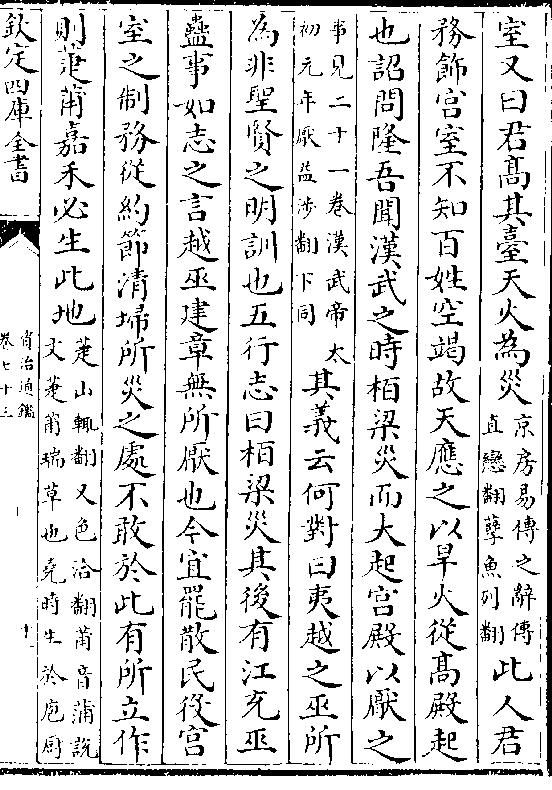 室又曰君髙其臺天火為災京房易傳之辭傳直戀翻孽魚列翻此人君
務飾宫室不知百姓空竭故天應之以旱火從髙殿起
也詔問隆吾聞漢武之時栢梁災而大起宫殿以厭之
事見二十一卷漢武帝太初元年厭益涉翻下同其義云何對曰夷越之巫所
為非聖賢之明訓也五行志曰栢梁災其後有江充巫
蠱事如志之言越巫建章無所厭也今宜罷散民役宫
室之制務從約節清埽所災之處不敢於此有所立作
則萐莆嘉禾必生此地萐山輒翻又色洽翻莆音蒲說文萐莆瑞草也堯時生於庖厨
欽定四庫全書
資治通鑑
卷七十三
十